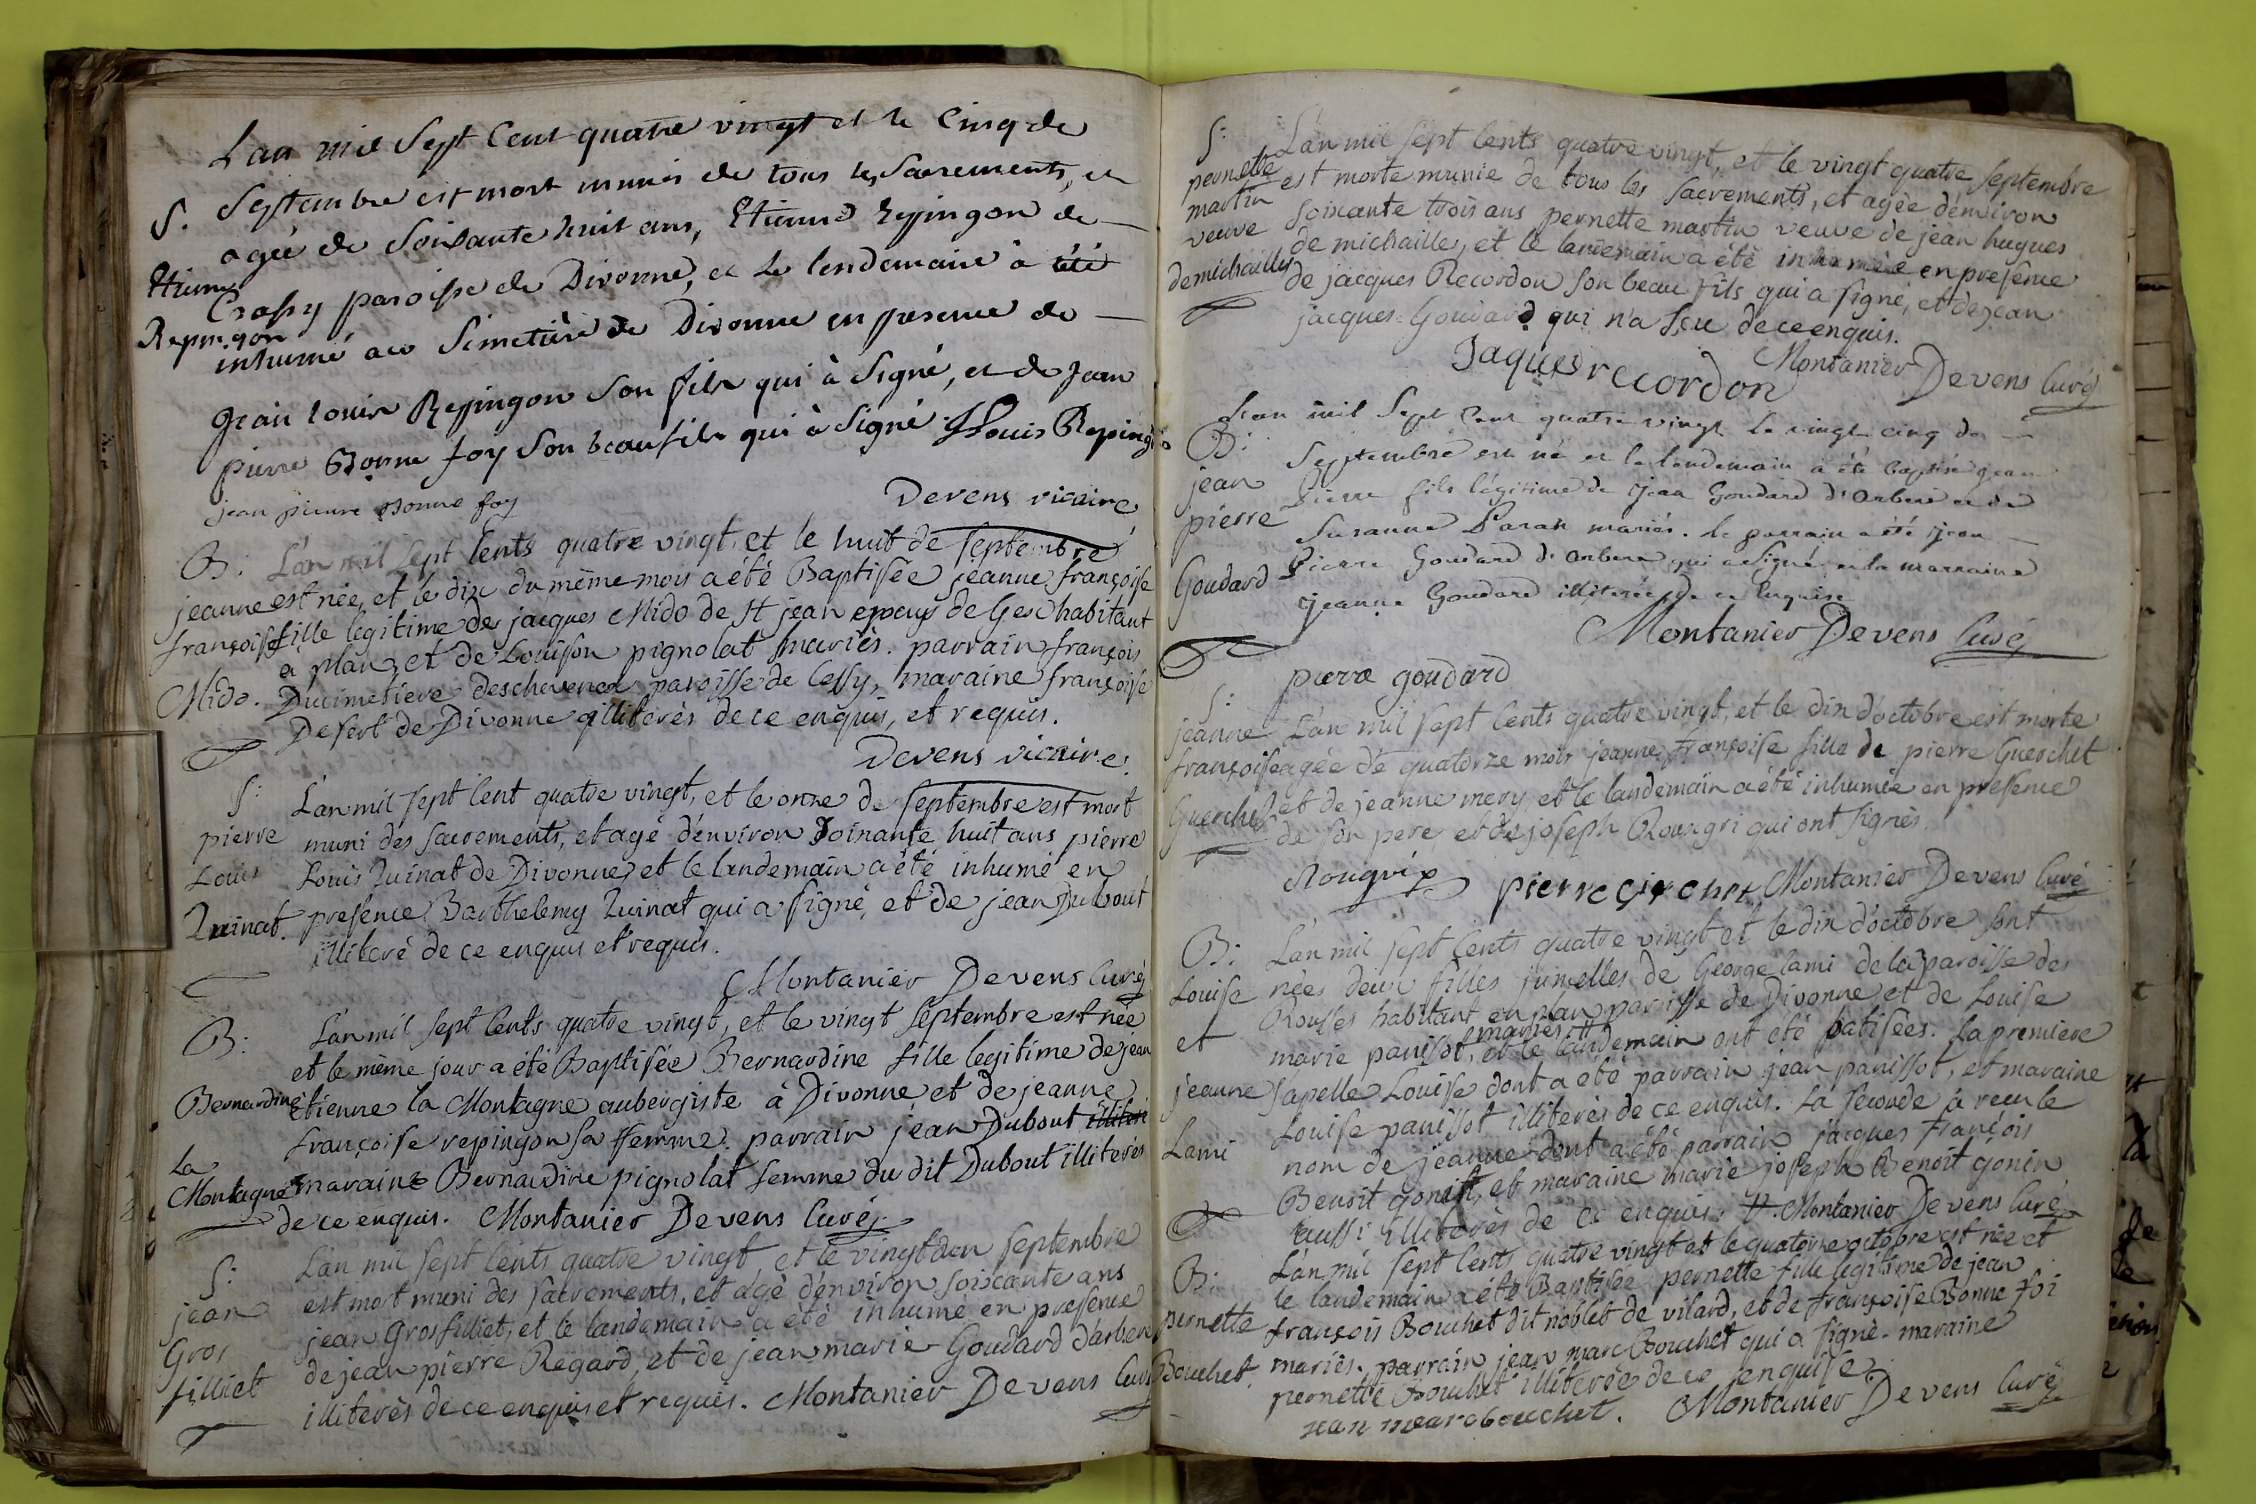 L'an mil Sept Cent quatre vingt et le Cinq de
S. Septembre est mort munis de tous les Sacrements, et
agée de Soixante huit ans, Etienne Repingon de
Etienne Crassy paroisse de Divonne, et le lendemain à été
Repingon inhumé au Simetière de Divonne en presence de
Jean Louis Repingon Son fils qui à Signé, et de Jean
pierre Bonne foy Son beaufils qui à Signé JLouis Reping
jean pierre Bonne foy
Devens vicaire
B. L'an mil sept cents quatre vingt, et le huit de septembre
jeanne est née, et le dix du même mois a été Baptisée jeanne françoise
françoise fille legitime de jacques Mido de St jean de Gex habitant
a plan, et de Louison pignolat mariès. parrain françois
Mido. Ducimetiere deschevenex paroisse de Cessy, maraine françoise
Desert de Divonne illiterès de ce enquis, et requis.
Devens vicaire.
S: L'an mil sept Cent quatre vingt, et le onze de septembre est mort
pierre muni des sacrements, et agé d'environ Soixante huit ans pierre
Louis Louis Quinat de Divonne, et le landemain a été inhumé en
Quinat. presence Barthelemy Quinat qui a signé, et de jean Dubout
illiteré de ce enquis et requis.
Montanier Devens Curé
B: L'an mil sept Cents quatre vingt, et le vingt septembre est née
et le même jour a été Baptisée Bernardine fille legitime de jean
Bernardine Etienne la Montagne aubergiste à Divonne et de jeanne
françoise repingon sa femme. parrain jean Dubout illiteré
La
Montagne maraine Bernardine pignolat femme du dit Dubout illiterés
de ce enquis. Montanier Devens Curé
S: L'an mil sept Cents quatre vingt et le vingt deux septembre
jean est mort muni des sacrements, et agé d'environ soixante ans
Gros jean Grosfilliet, et le landemain a été inhumé en presence
filliet de jean pierre Regard, et de jean marie Goudard d'arbere
illiterès de ce enquis et requis. Montanier Devens Curé
S: L'an mil sept Cents quatre vingt, et le vingt quatre septembre
pernette est morte munie de tous les sacrements, et agée d'environ
martin soixante trois ans pernette martin veuve de jean hugues
veuve de michailles, et le landemain a été inhumée en presence
demichailles de jacques Recordon son beau fils qui a signé, et de jean
jacques Goudard qui n'a sçu de ce enquis.
Jaques recordon Montanier Devens Curé
L'an mil Sept Cent quatre vingt le vingt cinq de
B: Septembre est né et le lendemain à été baptisé jean
jean Pierre fils légitime de Jean Goudard d'Arbere et de
pierre Susanne Parat mariés. le parrain a été Jean
Goudard Pierre Goudard d'Arbere qui a Signé et la marraine
Jeanne Goudard illiterée de ce Enquise
Montanier Devens Curé
pierre goudard
S: L'an mil sept Cents quatre vingt, et le dix d'octobre est morte
jeanne françoise agée de quatorze mois jeanne françoise fille de pierre Guerchet
Guerchet et de jeanne mery, et le landemain a été inhumée en presence
de son pere et de joseph Rougri qui ont signés.
Rougri pierre Girchet Montanier Devens Curé
B: L'an mil sept Cents quatre vingt et le dix d'octobre sont
Louise nées deux filles jumelles de George lami de la paroisse des
Rousses habitant en plan paroisse de Divonne, et de Louise
mariès
et marie panissot, et le landemain ont été batisées. La premiere
jeanne s'apelle Louise dont a été parrain jean panissot, et maraine
Louise panissot illiterès de ce enquis. La seconde à reçu le
Lami nom de jeanne dont a été parrain jacques françois
Benoit gonin, et maraine marie joseph Benoit gonin
aussi illiterès de ce enquis. Montanier Devens Curé
B: L'an mil sept Cents quatre vingt et le quatorze octobre est née et
le landemain a été Baptisée pernette fille legitime de jean
pernette françois Bouchet dit noblet de vilard, et de françoise Bonne foi
Bouchet. mariès. parrain jean marc Bouchet qui a signé. maraine
pernette Bouchet illiterée de ce enquise.
jean marc bouchet. Montanier Devens Curé